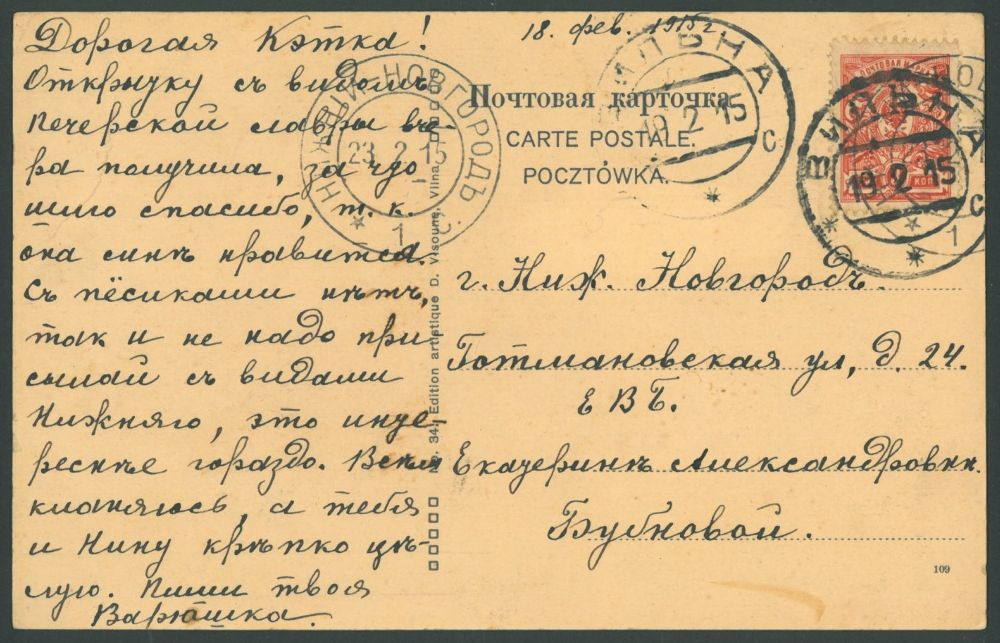 18. фев. 1915 г
Дорогая Кэтка!
Открытку съ видомъ
Печерской лавры вче-
ра получила, за что
мнго спасибо, т. к.
она симп нравится.
Съ пёсиками нѣтъ,
так и не надо при
сылай съ видами
Нижняго, это инте
реснѣе гораздо. Всѣмъ
кланяюсь, а тебя
и Нину крѣпко цѣ-
лую. Пиши твоя
Варюшка.
Почтовая карточка.
CARTE POSTALE.
POCZTÓWKA.
г. Ниж. Новгородъ.
Готмановская ул, д. 24.
Е В Б.
Екатеринѣ Александровнѣ
Бубновой.
34. Edition artistique D. Visoune, Vilna
НИЖНІЙ-НОВГОРОДЪ
23.2.15
1 С.
ВИЛЬНА
19 2 15
С
ВИЛЬНА
19.2.15
С
1
ПОЧТОВАЯ МАРКА
КОП
109